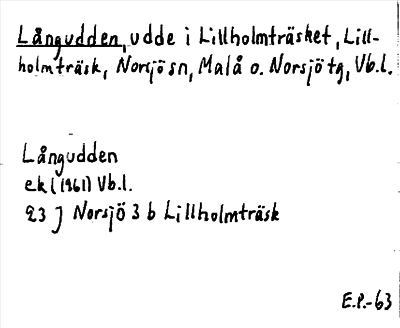 Långudden, udde i Lillholmträsket, Lill-
holmträsk, Norsjö sn, Malå o. Norsjö tg, Vb.l.
Långudden
ek (1961) Vb.l.
23 J Norsjö 3 b Lillholmträsk
E.P.-63